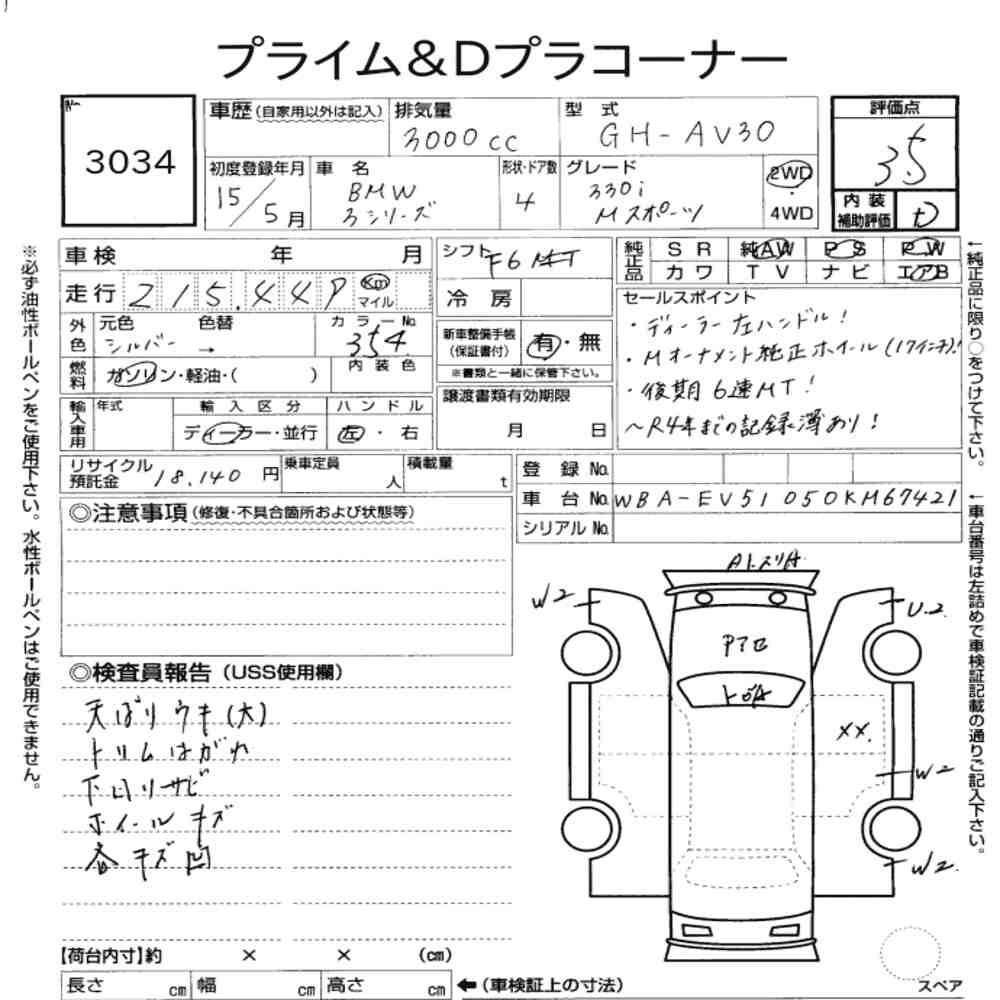 プライム&Dプラコーナー
No.
3034
車歴(自家用以外は記入)
排気量
3000cc
型式
GH-AV30
評価点
3.5
初度登録年月
15/5月
車名
BMW
3シリーズ
形状・ドア数
4
グレード
330i
Mスポーツ
2WD
・
4WD
内装
補助評価
D
車検 年 月
走行 215.449 Km
マイル
外色
元色 色替
シルバー →
カラーNo.
354
燃料
ガソリン・軽油・( )
内装色
輸入車用
年式
輸入区分
ディーラー・並行
ハンドル
左・右
シフト F6 MT
冷房
新車整備手帳
(保証書付)
有・無
※書類と一緒に保管下さい。
譲渡書類有効期限
月 日
純正品
SR 純AW PS PW
カワ TV ナビ エアB
セールスポイント
・ディーラー左ハンドル!
・Mオーナメント純正ホイール(17インチ)!
・後期6速MT!
~R4年までの記録簿あり!
リサイクル
預託金 18.140 円
乗車定員
人
積載量
t
登録No.
車台No. WBA-EV51050KM67421
シリアルNo.
◎注意事項(修復・不具合箇所および状態等)
◎検査員報告(USS使用欄)
天ばりウキ(大)
トリムはがれ
下回りサビ
ホイールキズ
各キズ凹
W2
U.2
トびA
××.
W2
W2
【荷台内寸】約 × × (cm)
長さ cm 幅 cm 高さ cm
←(車検証上の寸法)
スペア
※必ず油性ボールペンをご使用下さい。水性ボールペンはご使用できません。
←純正品に限り○をつけて下さい。
←車台番号は左詰めで車検証記載の通りご記入下さい。